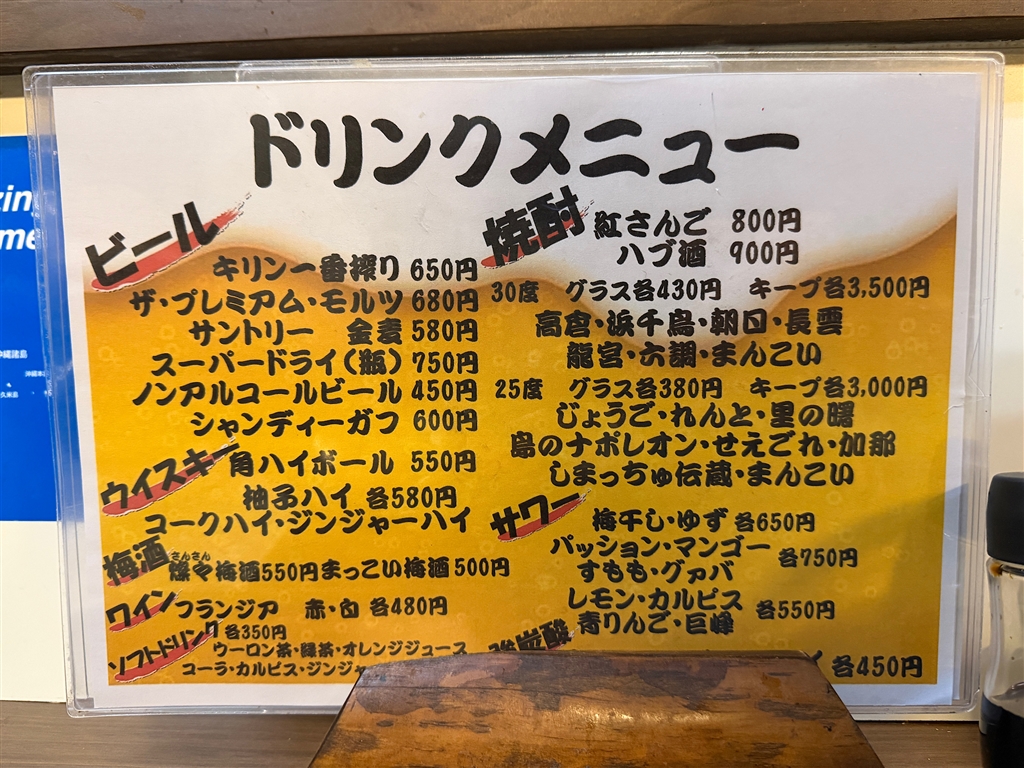 ドリンクメニュー
ビール
キリン一番搾り 650円
ザ・プレミアム・モルツ 680円
サントリー 金麦 580円
スーパードライ(瓶) 750円
ノンアルコールビール 450円
シャンディーガフ 600円
ウイスキー
角ハイボール 550円
柚子ハイ 各580円
コークハイ・ジンジャーハイ
梅酒
さんさん
燦々梅酒550円 まっこい梅酒 500円
ワイン
フランジア 赤・白 各480円
ソフトドリンク
各350円
ウーロン茶・緑茶・オレンジジュース
コーラ・カルピス・ジンジャ
焼酎
紅さんご 800円
ハブ酒 900円
30度 グラス各430円 キープ各3,500円
高倉・浜千鳥・朝日・長雲
龍宮・六調・まんこい
25度 グラス各380円 キープ各3,000円
じょうご・れんと・里の曙
島のナポレオン・せえごれ・加那
しまっちゅ伝蔵・まんこい
サワー
梅干し・ゆず 各650円
パッション・マンゴー
すもも・グァバ 各750円
レモン・カルピス
青りんご・巨峰 各550円
強炭酸
各450円
zing
me
沖縄諸島
沖縄本
久米島